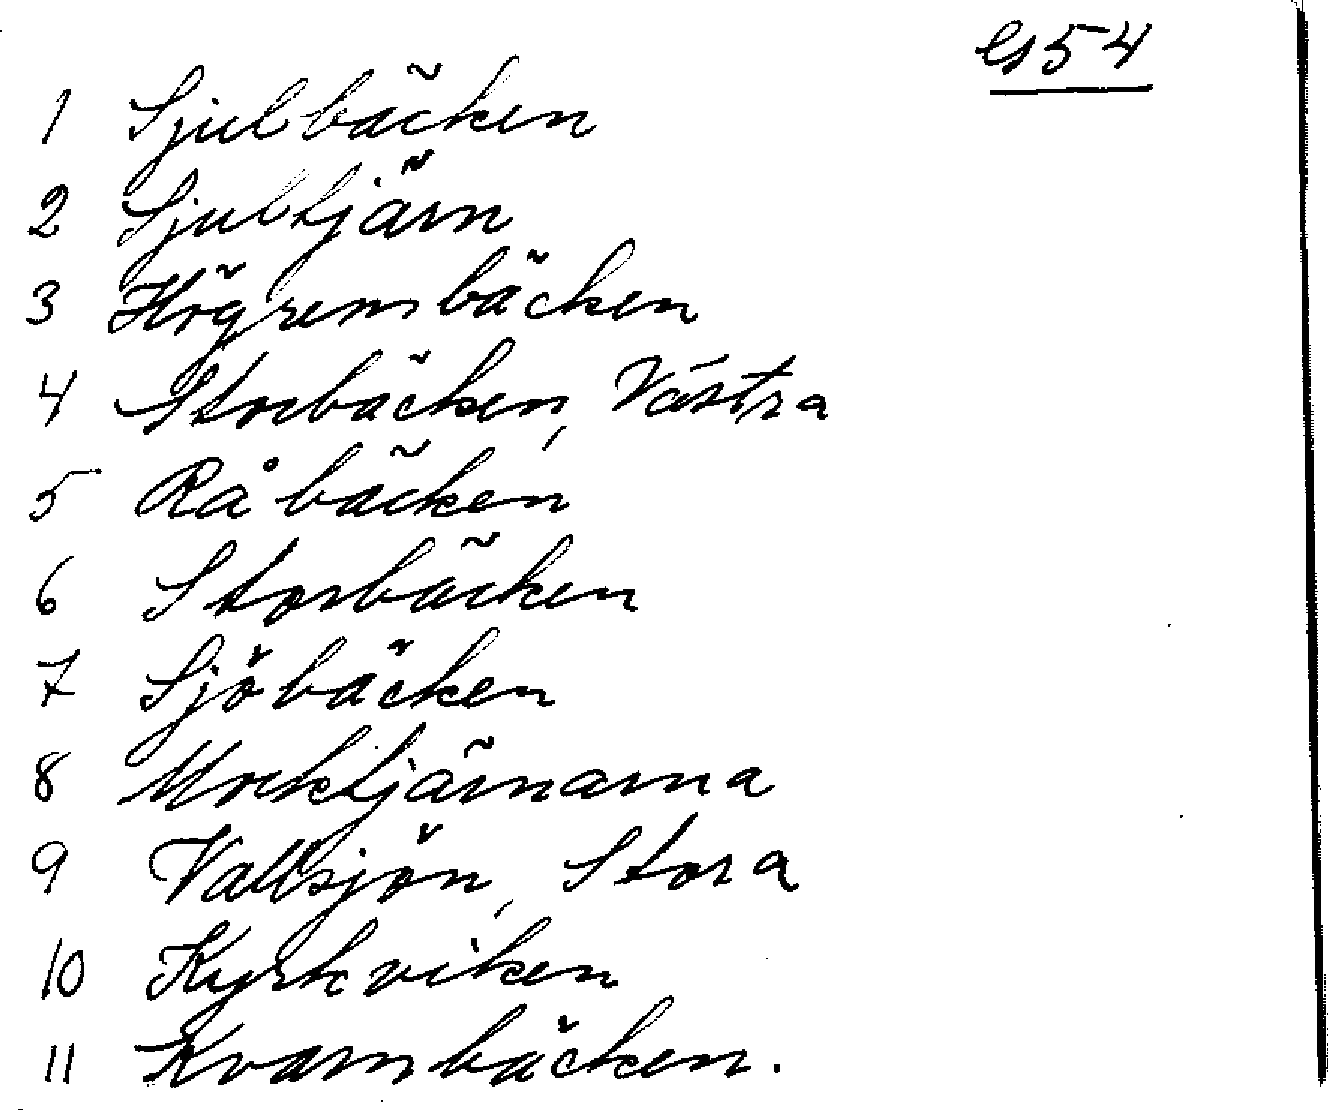 es 54
1 Sjulbäcken
2 Sjultjärn
3 Högrensbäcken
4 Storbäcken, Västra
5 Råbäcken
6 Storbäcken
7 Sjöbäcken
8 Morktjärnarna
9 Vallsjön, Stora
10 Kyrkviken
11 Kvarnbäcken.